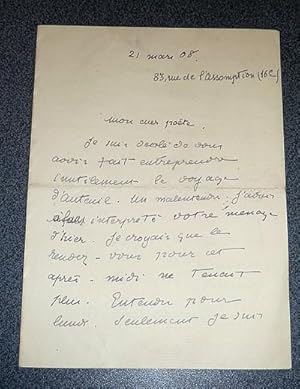 21 mars 08.
83, rue de l'assomption (16e)
mon cher poète.
Je suis désolé de vous
avoir fait entreprendre
inutilement le voyage
d'auteuil. Un malentendu : j'avais
interprété votre message
d'hier. Je croyais que le
rendez-vous pour cet
après-midi ne tenait
plus. Entendu pour
lundi. Seulement je suis